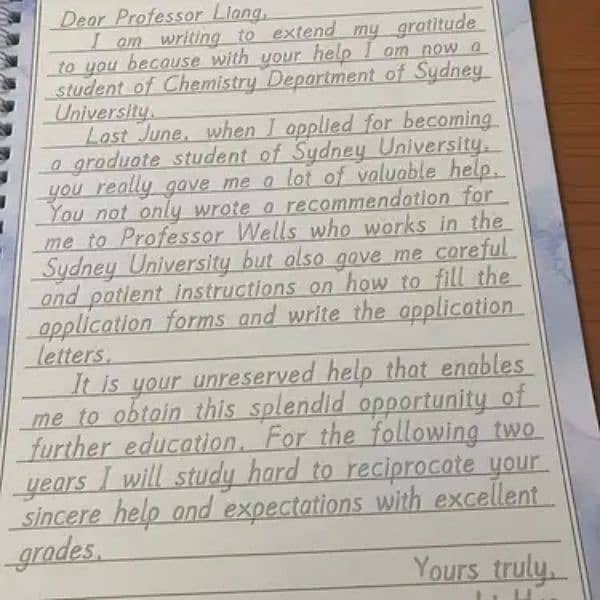 Dear Professor Liang,
I am writing to extend my gratitude
to you because with your help I am now a
student of Chemistry Department of Sydney
University.
Last June, when I applied for becoming
a graduate student of Sydney University,
you really gave me a lot of valuable help.
You not only wrote a recommendation for
me to Professor Wells who works in the
Sydney University but also gave me careful
and patient instructions on how to fill the
application forms and write the application
letters.
It is your unreserved help that enables
me to obtain this splendid opportunity of
further education. For the following two
years I will study hard to reciprocate your
sincere help and expectations with excellent
grades.
Yours truly,